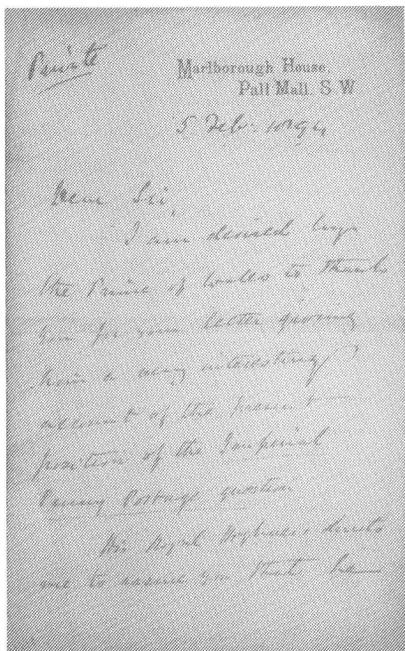 Private
Marlborough House,
Pall Mall. S.W
5 Feb: 1894
Dear Sir,
I am desired by
the Prince of Wales to thank
you for your letter giving
him a very interesting
account of the present
position of the Imperial
Penny Postage question
His Royal Highness directs
me to assure you that he